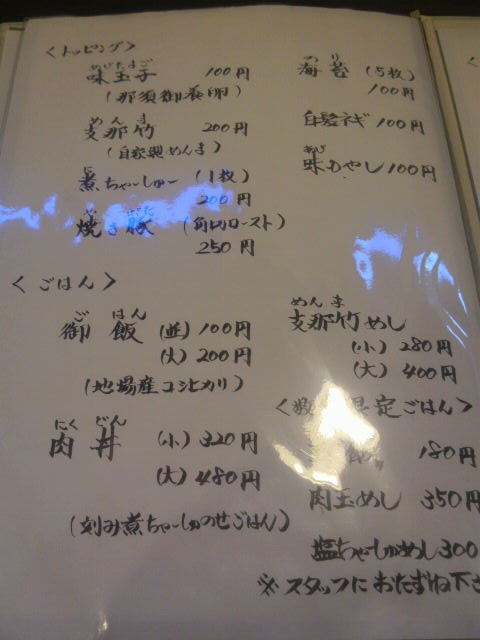 <トッピング>
あじたまご
味玉子 100円
(那須御養卵)
めんま
支那竹 200円
(自家製めんま)
煮ちゃーしゅー (1枚)
200円
焼き豚 (角切ロースト)
250円
のり
海苔 (5枚)
100円
白髪ネギ 100円
あじ
味もやし 100円
<ごはん>
ごはん
御飯 (並) 100円
(大) 200円
(地場産コシヒカリ)
にくどん
肉丼 (小) 320円
(大) 480円
(刻み煮ちゃーしゅのせごはん)
めんま
支那竹めし
(小) 280円
(大) 400円
定ごはん>
180円
肉玉めし 350円
塩ちゃーしゅめし 300
※スタッフにおたずね下さ